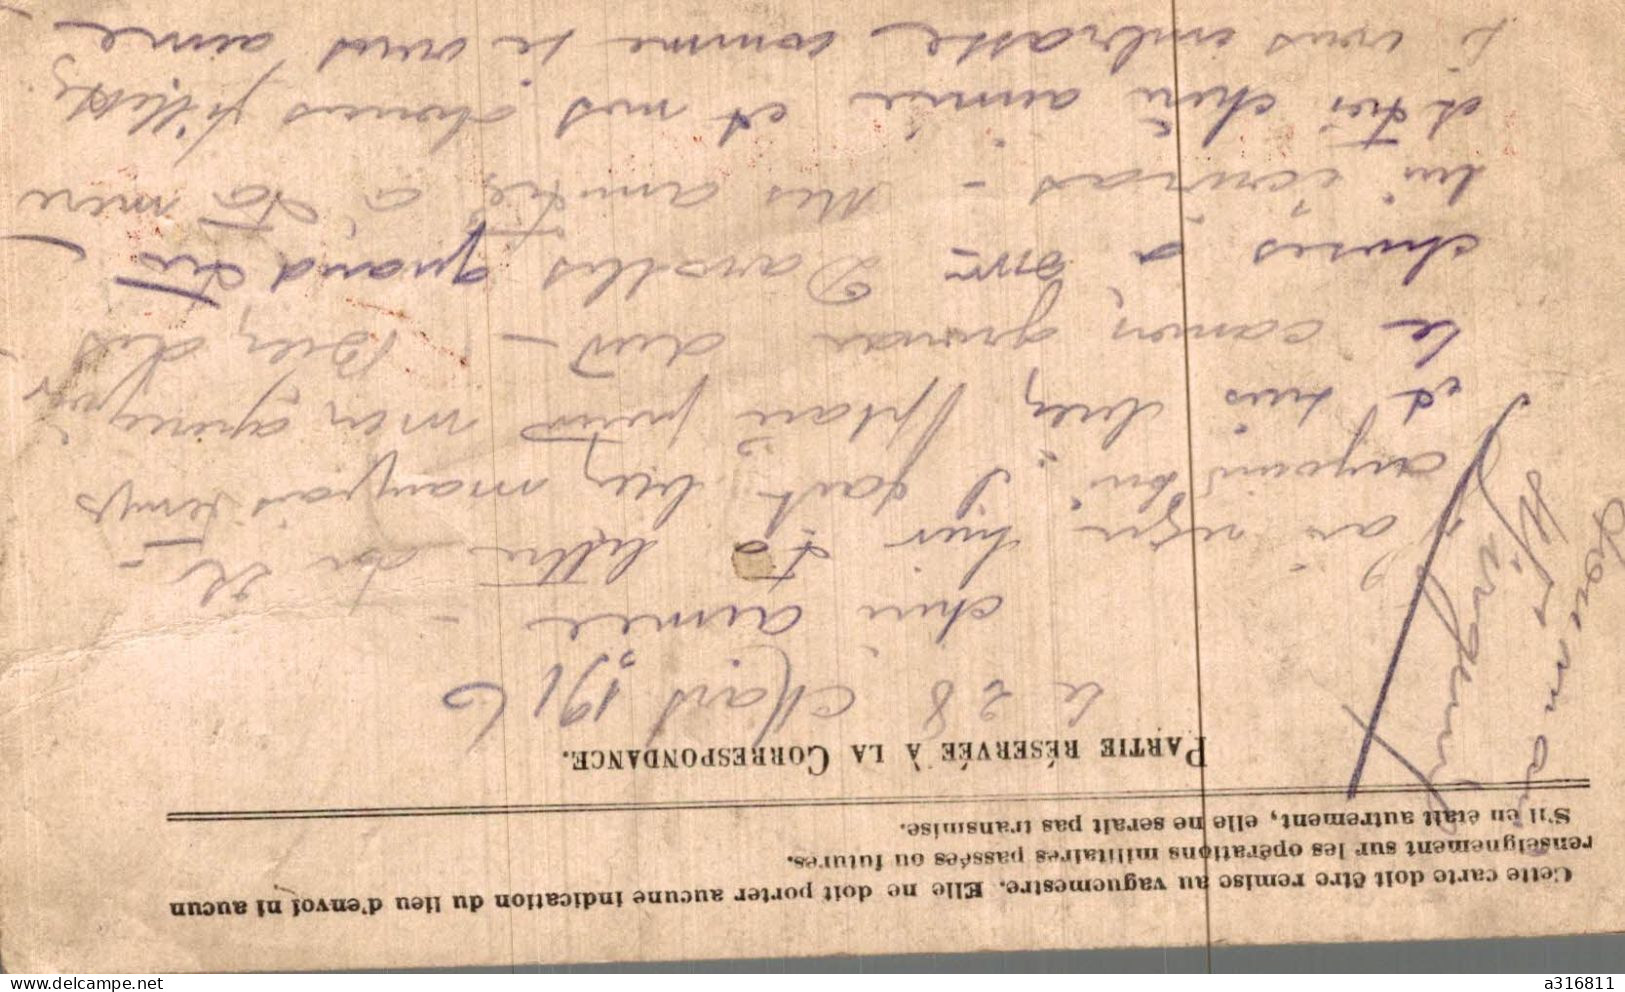 Cette carte doit être remise au vaguemestre. Elle ne doit porter aucune indication du lieu d'envoi ni aucun
renseignement sur les opérations militaires passées ou futures.
S'il en était autrement, elle ne serait pas transmise.
PARTIE RÉSERVÉE À LA CORRESPONDANCE.
le 28 Mars 1916
chère aimée -
J'ai reçu hier ta lettre du
aujourd'hui. Il fait bien mauvais temps
et suis bien
le canon gronde dur - Bien des
choses à Darolles quand tu
lui écriras - Mes amitiés à ta mère
et toi chère aimée et nos chères fillettes
je vous embrasse comme je vous aime
delcampe.net
a316811